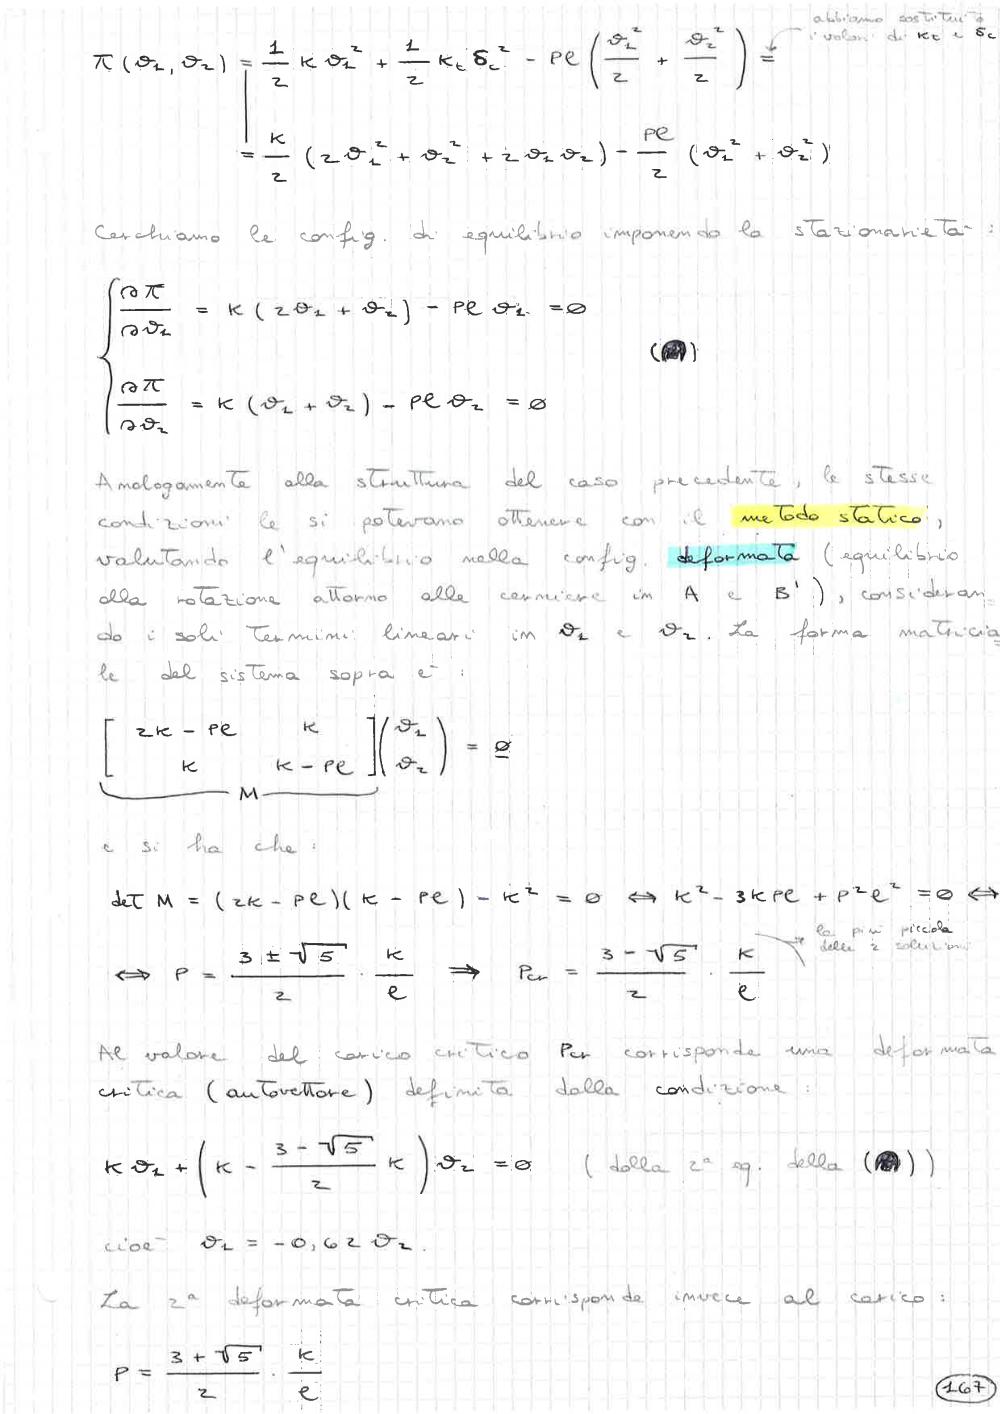 abbiamo sostituito
i valori di Kt e δc
π(ϑ1, ϑ2) = 1/2 K ϑ1² + 1/2 Kt δc² - Pℓ (ϑ1²/2 + ϑ2²/2) =
= K/2 (2ϑ1² + ϑ2² + 2ϑ1ϑ2) - Pℓ/2 (ϑ1² + ϑ2²)
Cerchiamo le config. di equilibrio imponendo la stazionarietà :
∂π/∂ϑ1 = K (2ϑ1 + ϑ2) - Pℓ ϑ1 = 0
∂π/∂ϑ2 = K (ϑ1 + ϑ2) - Pℓ ϑ2 = 0
Analogamente alla struttura del caso precedente, le stesse
condizioni le si potevano ottenere con il metodo statico,
valutando l'equilibrio nella config. deformata (equilibrio
alla rotazione attorno alle cerniere in A e B'), consideran=
do i soli termini lineari in ϑ1 e ϑ2. La forma matricia=
le del sistema sopra è :
[ 2K - Pℓ K ] (ϑ1)
[ K K - Pℓ ] (ϑ2) = 0
M
e si ha che :
det M = (2K - Pℓ)(K - Pℓ) - K² = 0 ⇔ K² - 3KPℓ + P²ℓ² = 0 ⇔
la più piccola
delle 2 soluzioni
⇔ P = (3 ± √5)/2 · K/ℓ ⇒ Pcr = (3 - √5)/2 · K/ℓ
Al valore del carico critico Pcr corrisponde una deformata
critica (autovettore) definita dalla condizione :
Kϑ1 + (K - (3 - √5)/2 K) ϑ2 = 0 (dalla 2ª eq. della (●))
cioè ϑ1 = -0,62 ϑ2.
La 2ª deformata critica corrisponde invece al carico :
P = (3 + √5)/2 · K/ℓ
167